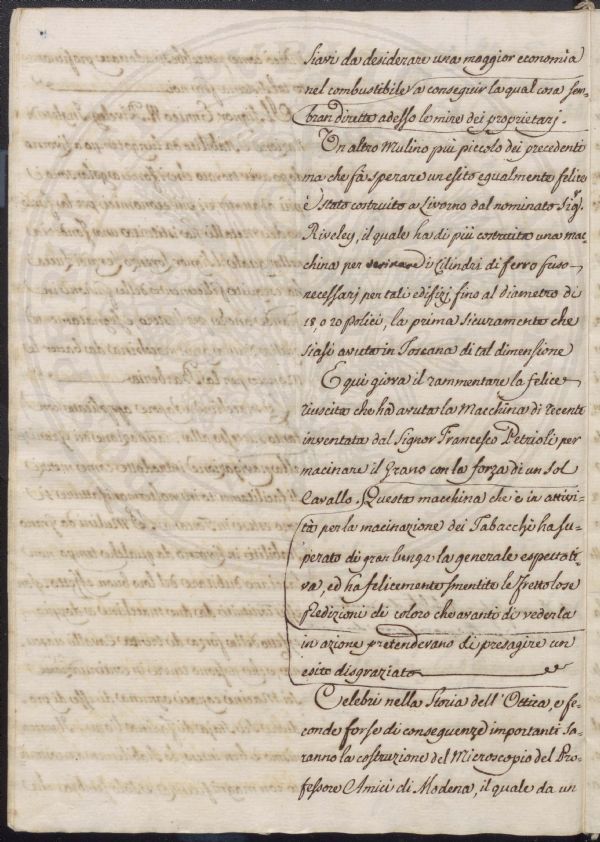 siavi da desiderare una maggior economia
nel combustibile a conseguir la qual cosa sem
bran dirette adesso le mire dei proprietarj.
Un altro Mulino più piccolo dei precedenti
ma che fà sperare un esito egualmente felice
è stato costruito a Livorno dal nominato Sigr.
Riveley, il quale ha di più costruita una mac-
china per i Cilindri di ferro fuso
necessarj per tali edifizj, fino al diametro di
18, o 20 polici, la prima sicuramente che
siasi avuta in Toscana di tal dimensione
E quì giova il rammentare la felice
riuscita che ha avuta la Macchina di recente
inventata dal Signor Francesco Petrioli per
macinare il Grano con la forza di un sol
Cavallo. Questa macchina che è in attivi-
tà per la macinazione dei Tabacchi ha su-
perato di gran lunga la generale espettati-
va, ed ha felicemente smentite le frettolose
Predizioni di coloro che avanti di vederla
in azione pretendevano di presagire un
esito disgraziato
Celebri nella Storia dell'Ottica, e fe-
conde forse di conseguenze importanti sa-
ranno la costruzione del Microscopio del Pro-
fessore Amici di Modena, il quale da un